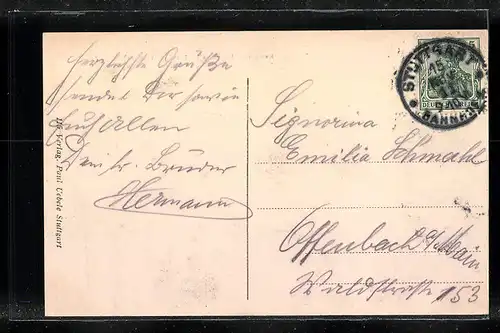 herzlichste Grüße
sendet Dir sowie
Euch Allen
Dein tr. Bruder
Hermann
Verlag: Paul Uebele Stuttgart
STUTTGART
BAHNHOF
Signorina
Emilia Schmahl
Offenbach a/Main
Waldstraße 153